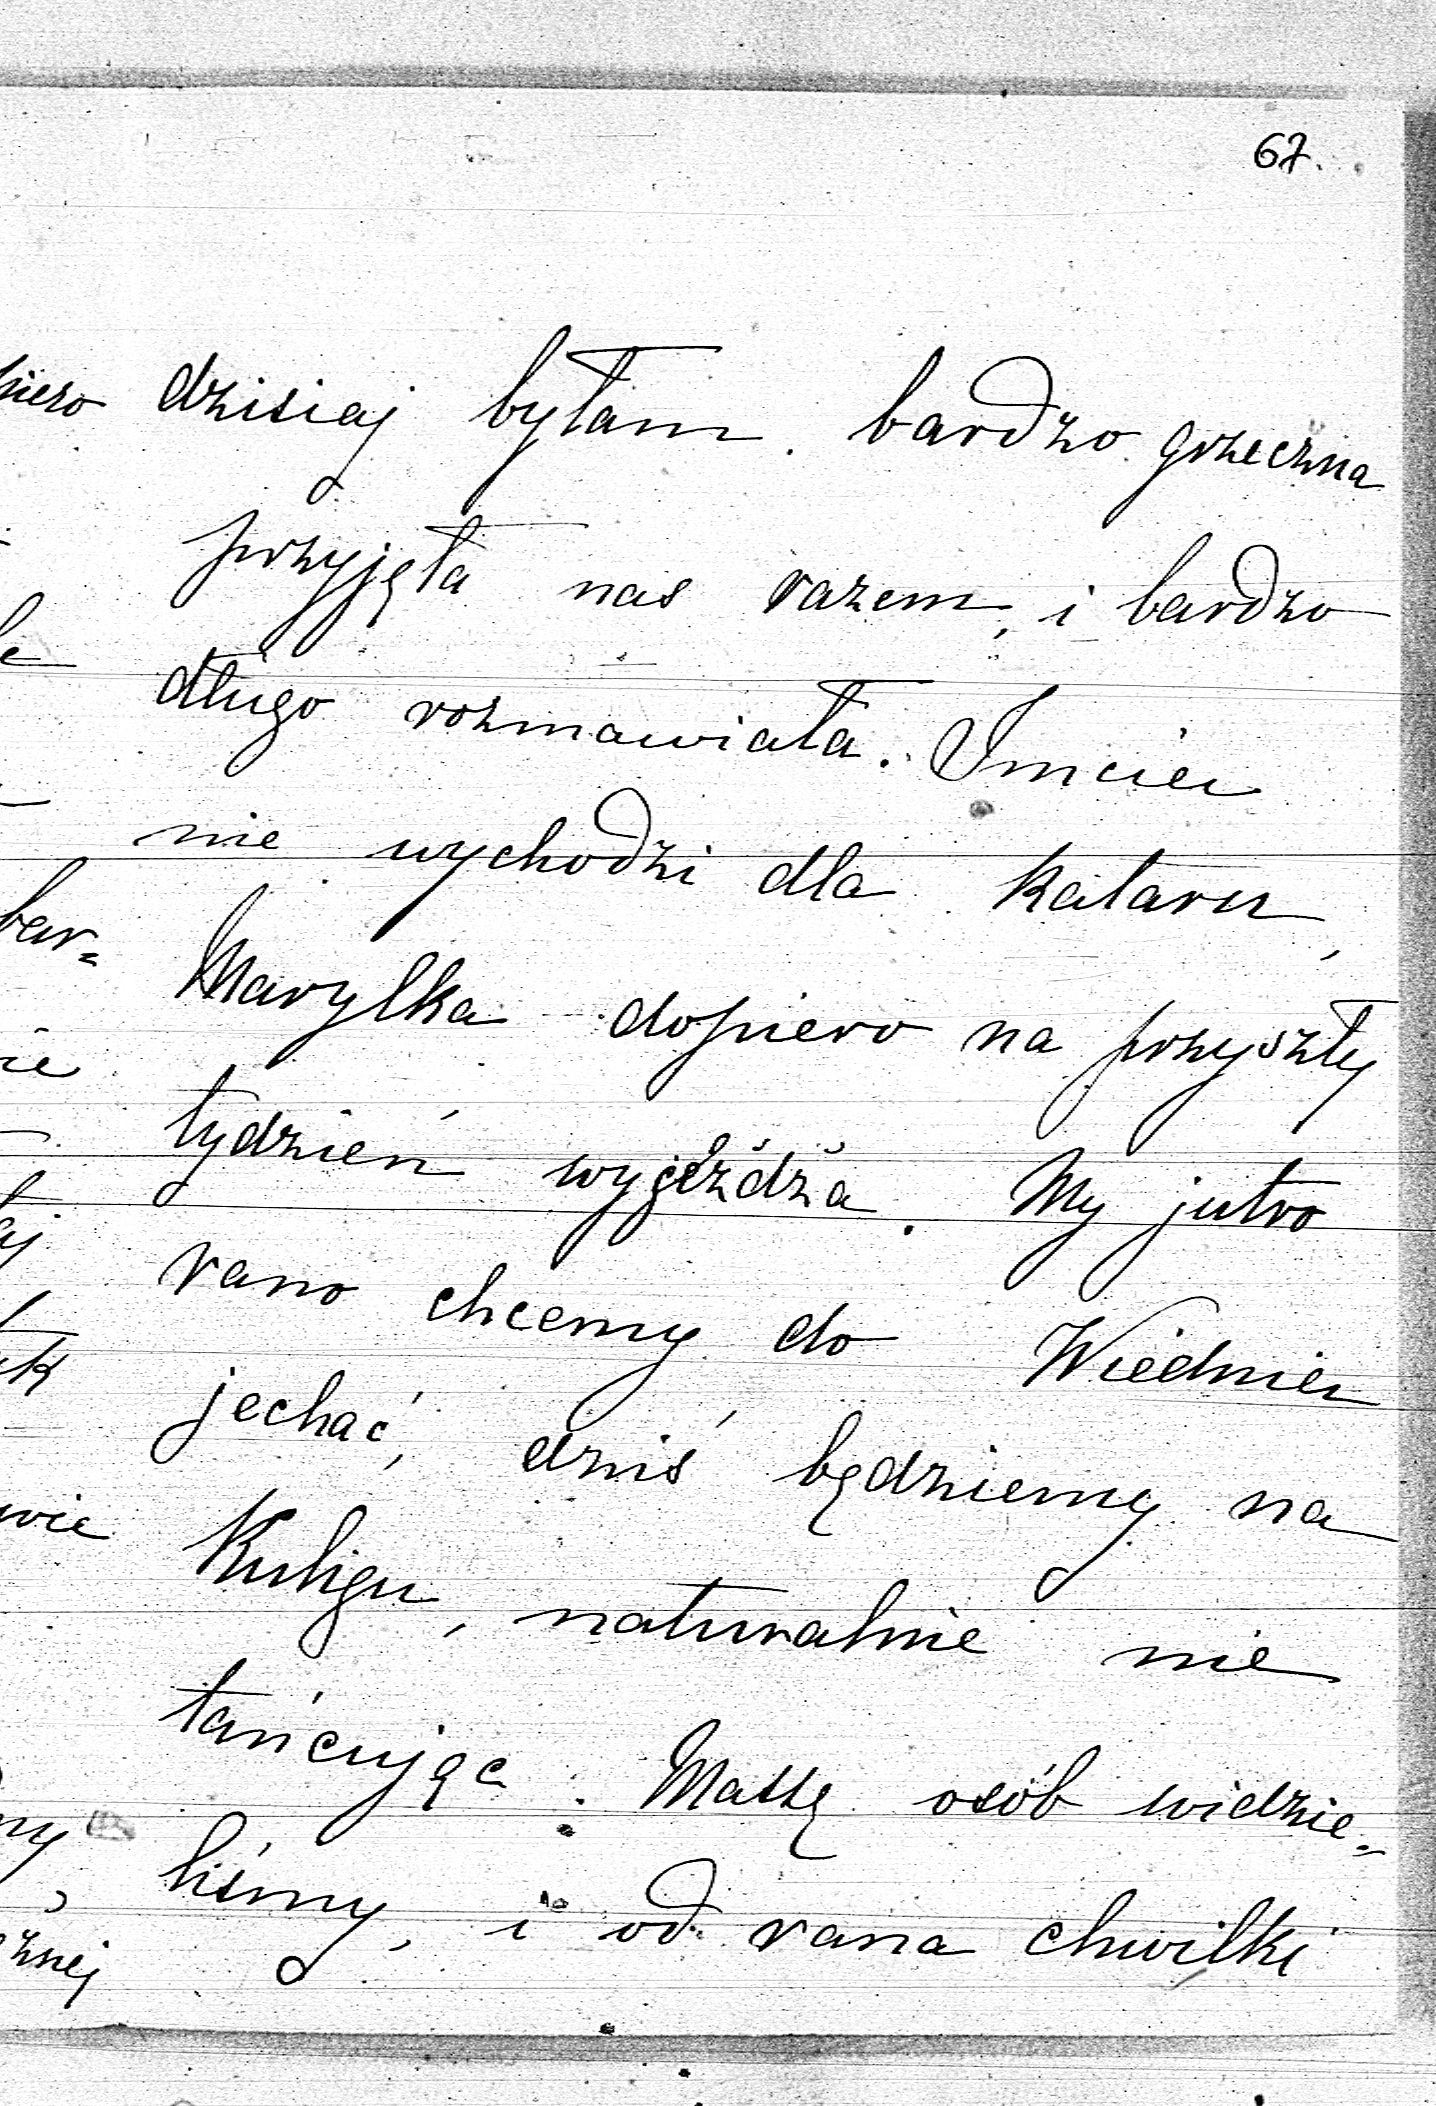 67.
dzisiaj byłam. bardzo grzeczna
przyjęła nas razem, i bardzo
długo rozmawiała.
nie wychodzi dla kataru,
Marylka dopiero na przyszły
tydzień wyjeżdża. My jutro
rano chcemy do Wiednia
jechać, dziś będziemy na
Kuligu, naturalnie nie
tańcując. Massę osób widzie-
liśmy, i od rana chwilki